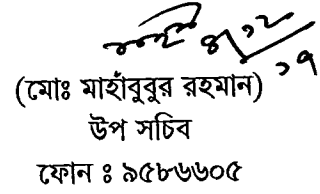 (মোঃ মাহাঁবুবুর রহমান)
উপ সচিব
ফোন ঃ ৯৫৮৬৬০৫